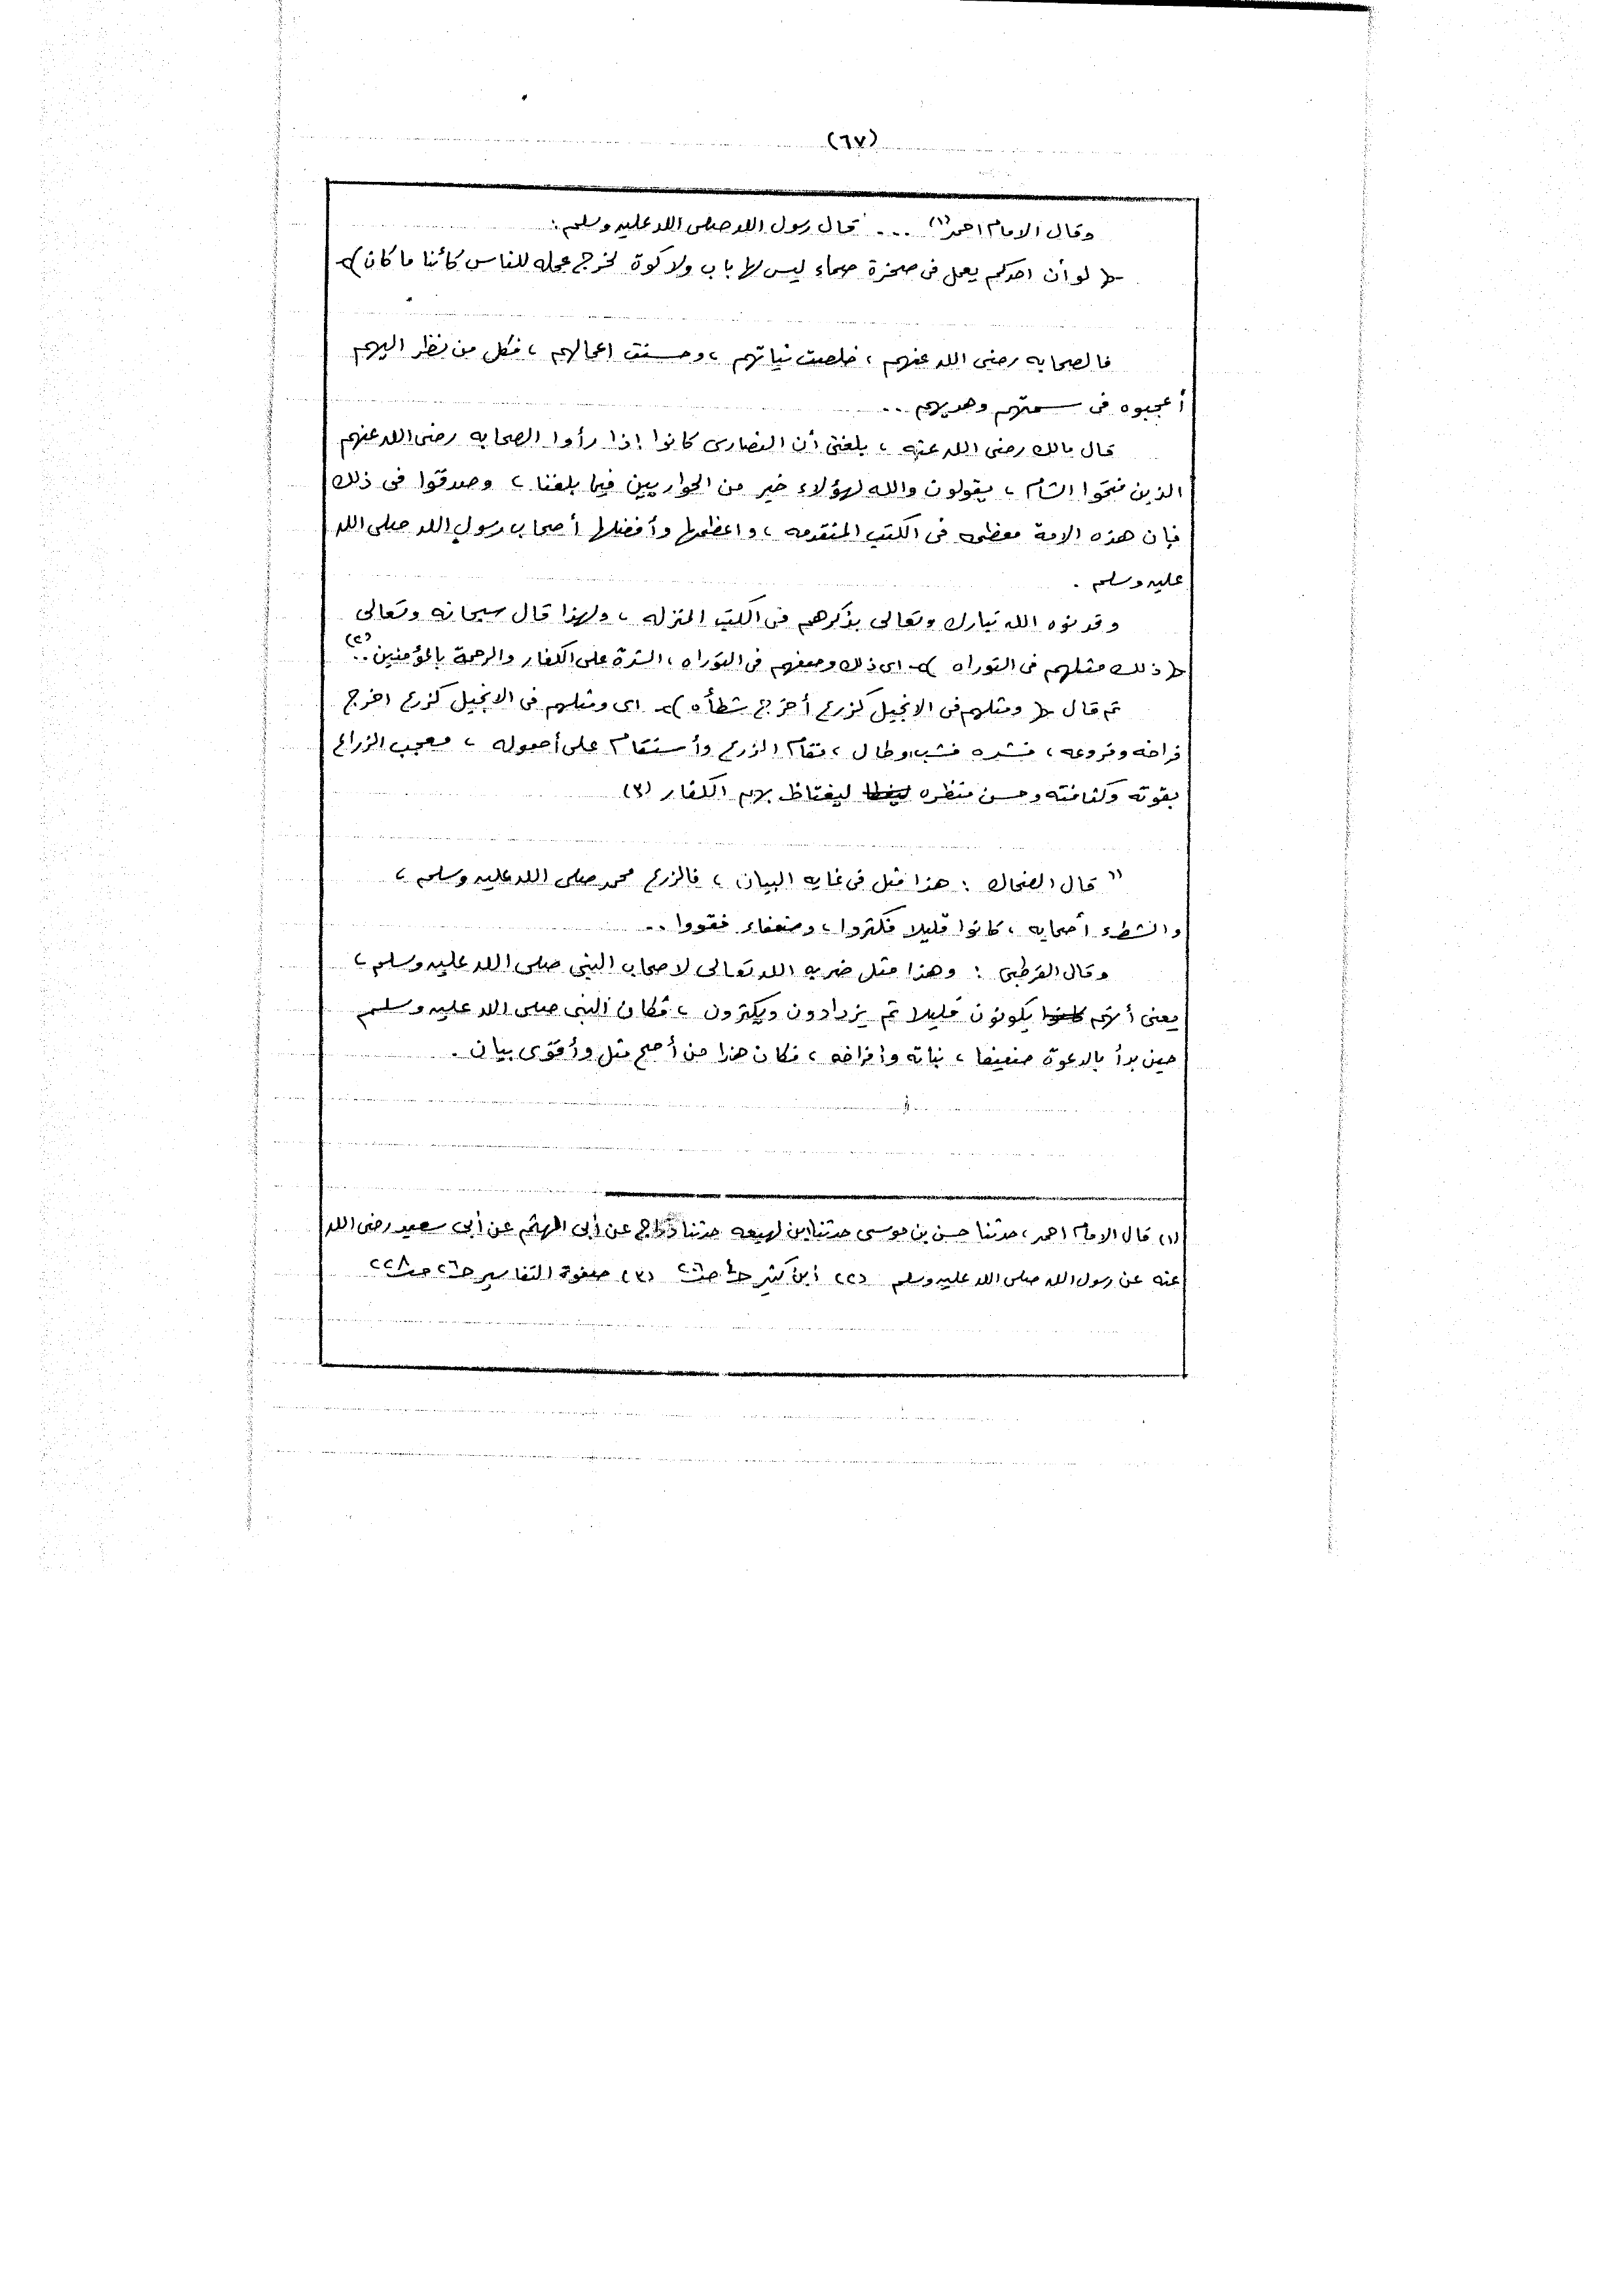 (٦٧)
وقال الامام احمد (١) ... قال رسول الله صلى الله عليه وسلم :
﴿ لو أن احدكم يعمل فى صخرة صماء ليس لها باب ولا كوة لخرج عمله للناس كائنا ما كان ﴾
فالصحابه رضى الله عنهم ، خلصت نياتهم ، وحسنت اعمالهم ، فكل من نظر اليهم
أعجبوه فى سمتهم وهديهم ..
قال مالك رضى الله عنه ، بلغنى أن النصارى كانوا إذا رأوا الصحابه رضى الله عنهم
الذين فتحوا الشام ، يقولون والله لهؤلاء خير من الحواريين فيما بلغنا ، وصدقوا فى ذلك
فإن هذه الامة معظمه فى الكتب المتقدمه ، واعظمها وأفضلها أصحاب رسول الله صلى الله
عليه وسلم .
وقد نوه الله تبارك وتعالى بذكرهم فى الكتب المنزله ، ولهذا قال سبحانه وتعالى
﴿ ذلك مثلهم فى التوراه ﴾ اى ذلك وصفهم فى التوراه ، الشدة على الكفار والرحمة بالمؤمنين .. (٢)
ثم قال ﴿ ومثلهم فى الانجيل كزرع أخرج شطأه ﴾ اى ومثلهم فى الانجيل كزرع اخرج
فراخه وفروعه ، فشده فشب وطال ، فقام الزرع وأستقام على أصوله ، فعجب الزراع
بقوته وكثافته وحسن منظره ليغتاظ بهم الكفار (٣)
" قال الضحاك : هذا مثل فى غايه البيان ، فالزرع محمد صلى الله عليه وسلم ،
والشطء أصحابه ، كانوا قليلا فكثروا ، وضعفاء فقووا ..
وقال القرطبى : وهذا مثل ضربه الله تعالى لاصحاب النبى صلى الله عليه وسلم ،
يعنى أنهم كانوا يكونون قليلا ثم يزدادون ويكثرون ، فكان النبى صلى الله عليه وسلم
حين بدأ بالدعوة ضعيفا ، نباته وافراخه ، فكان هذا من أصح مثل وأقوى بيان .
(١) قال الامام احمد ، حدثنا حسن بن موسى حدثنا ابن لهيعه حدثنا دراج عن أبى الهيثم عن أبى سعيد رضى الله
عنه عن رسول الله صلى الله عليه وسلم (٢) أبن كثير (٣) صفوة التفاسير